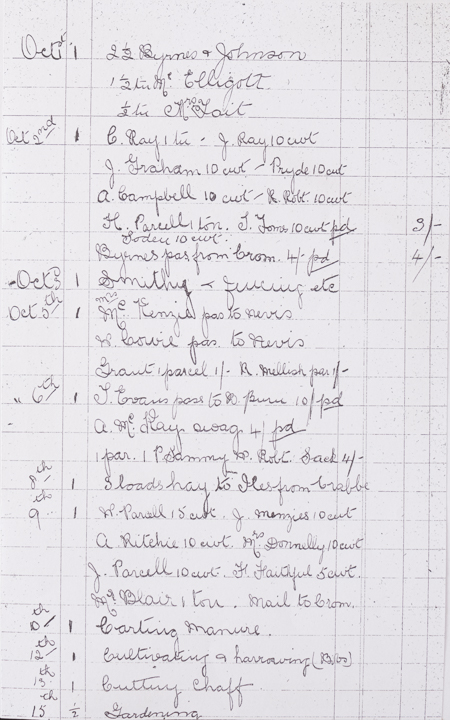 Oct 1st 1 2½ Byrnes & Johnson
1½ tn Mc Elligott
½ tn Mrs Tait
Oct 2nd 1 C. Ray 1 tn - J. Ray 10 cwt
J. Graham 10 cwt - Pryde 10 cwt
A. Campbell 10 cwt - R. Robt. 10 cwt
H. Parcell 1 ton. T. 10 cwt pd 3/-
Soden 10 cwt.
Byrnes pas from Crom. 4/- pd 4/-
Oct 3rd 1 Smithy & fencing etc
Oct 5th 1 Mrs McKenzie pas to Nevis
Cowie pas. to Nevis
Grant 1 parcel 1/- R. Mellish par 1/-
" 6th 1 T. Evans pass to 10/ pd
- A. McKay swag 4/ pd
1 par. 1 P Sammy Robt. Sack 4/-
8th 1 3 loads hay to Iles from Crabbe
9th 1 Parcell 15 cwt. J. Menzies 10 cwt
A Ritchie 10 cwt. Mrs Donnelly 10 cwt
J. Parcell 10 cwt. H. Faithful 5 cwt.
Mr Blair 1 ton. Mail to Crom.
10th 1 Carting Manure.
12th 1 Cultivating & harrowing
13th 1 Cutting Chaff
15th ½ Gardening